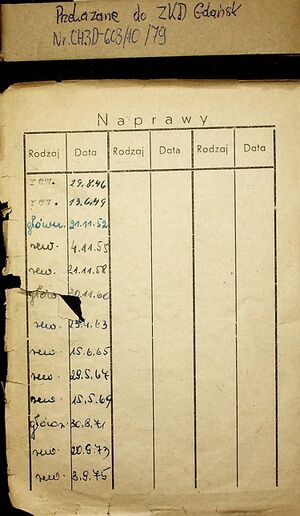 Przekazane do ZKD Gdańsk
Nr. CH3D-603/10/79
Naprawy
Rodzaj Data Rodzaj Data Rodzaj Data
rew. 29.8.46
rew. 13.6.49
główn. 21.11.52
rew. 4.11.55
rew. 21.11.58
główn 30.11.60
rew. 23.4.63
rew. 15.6.65
rew. 29.5.67
rew. 15.5.69
główn. 30.8.71
rew. 20.9.73
rew. 3.9.75